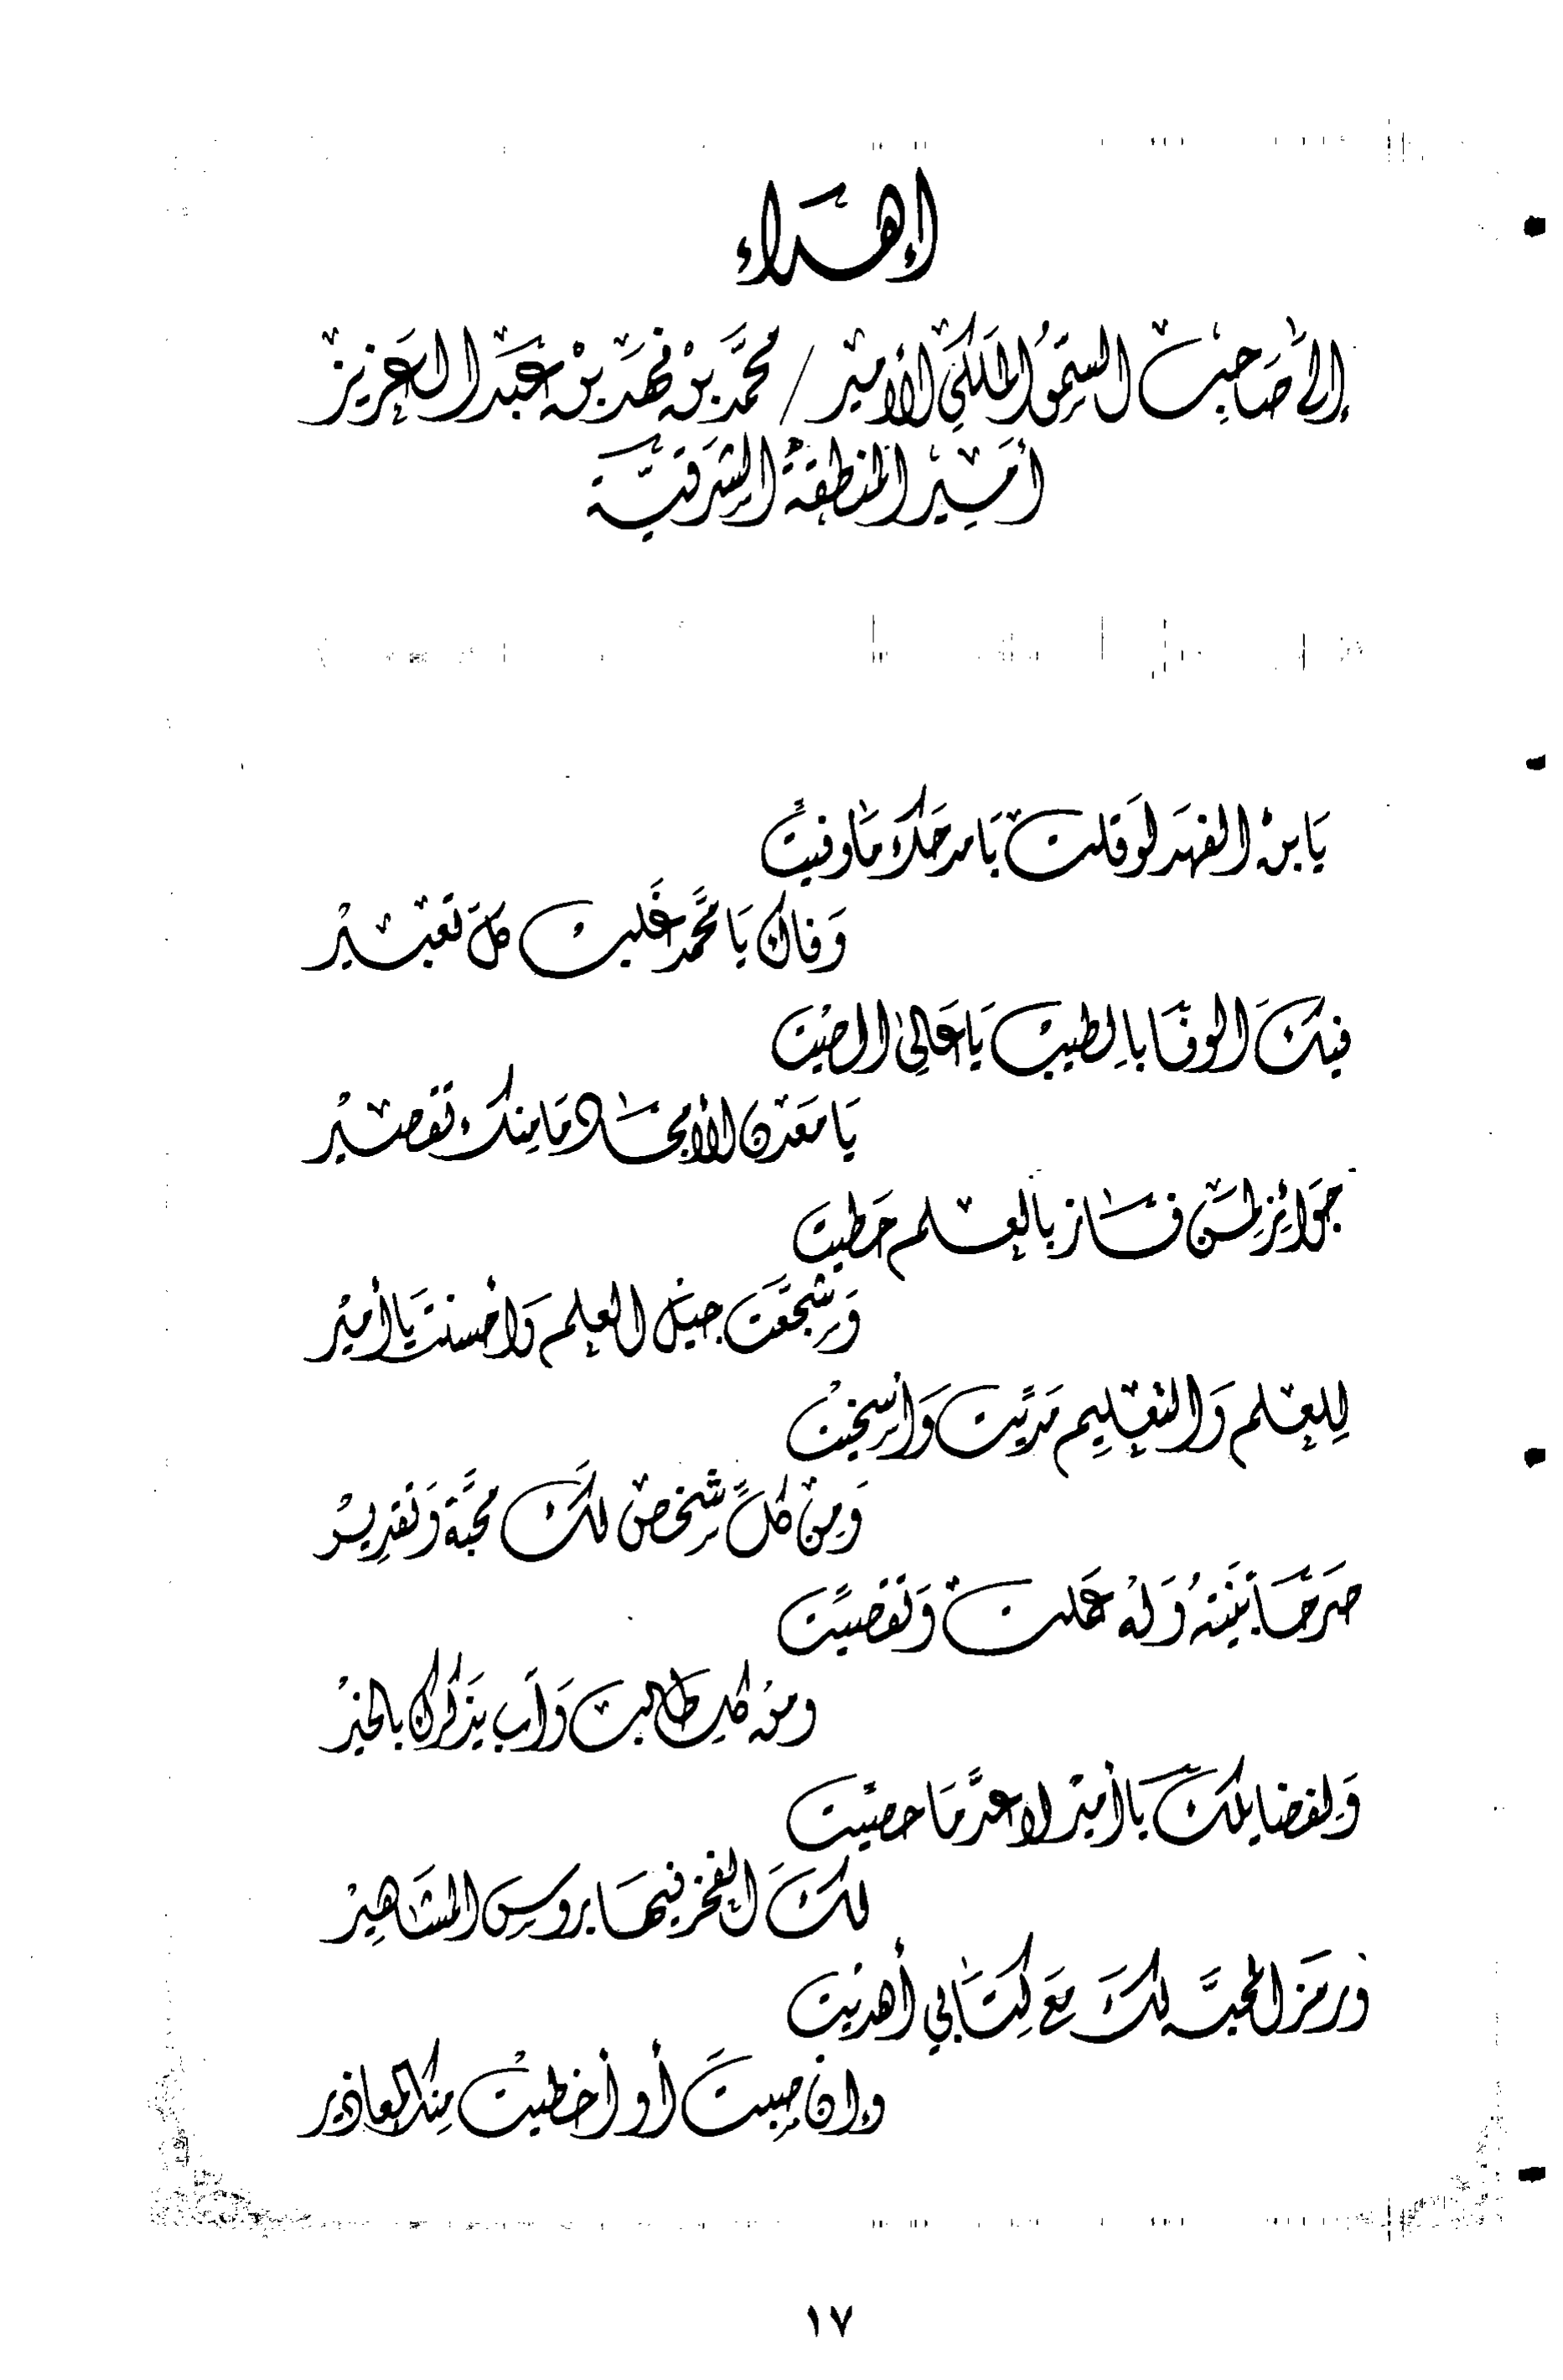 إهداء
إلى صاحب السمو الملكي الأمير / محمد بن فهد بن عبد العزيز
أمير المنطقة الشرقية
يا بن الفهد لو قلت با مدحك ما وفيت
وفاك يا محمد غليب كل تعبير
فيك الوفا بالطيب يا عالي الصيت
يا معدن الأمجاد ما منك تقصير
جوائز لمن فاز بالعلم حطيت
وشجعت جيل العلم واحسنت يا أمير
للعلم والتعليم مديت وارسخيت
ومن كل شخص لك محبة وتقدير
صرحا بنيته وله عملت وتقصيت
ومن كل طالب وآب يذكرك بالخير
ولفضايلك يا أمير لا عد ما حصيت
لك الفخر فيها بروس المشاهير
ورمز المحبه لك مع كتابي أهديت
وان صبت أو أخطيت منك المعاذير
١٧